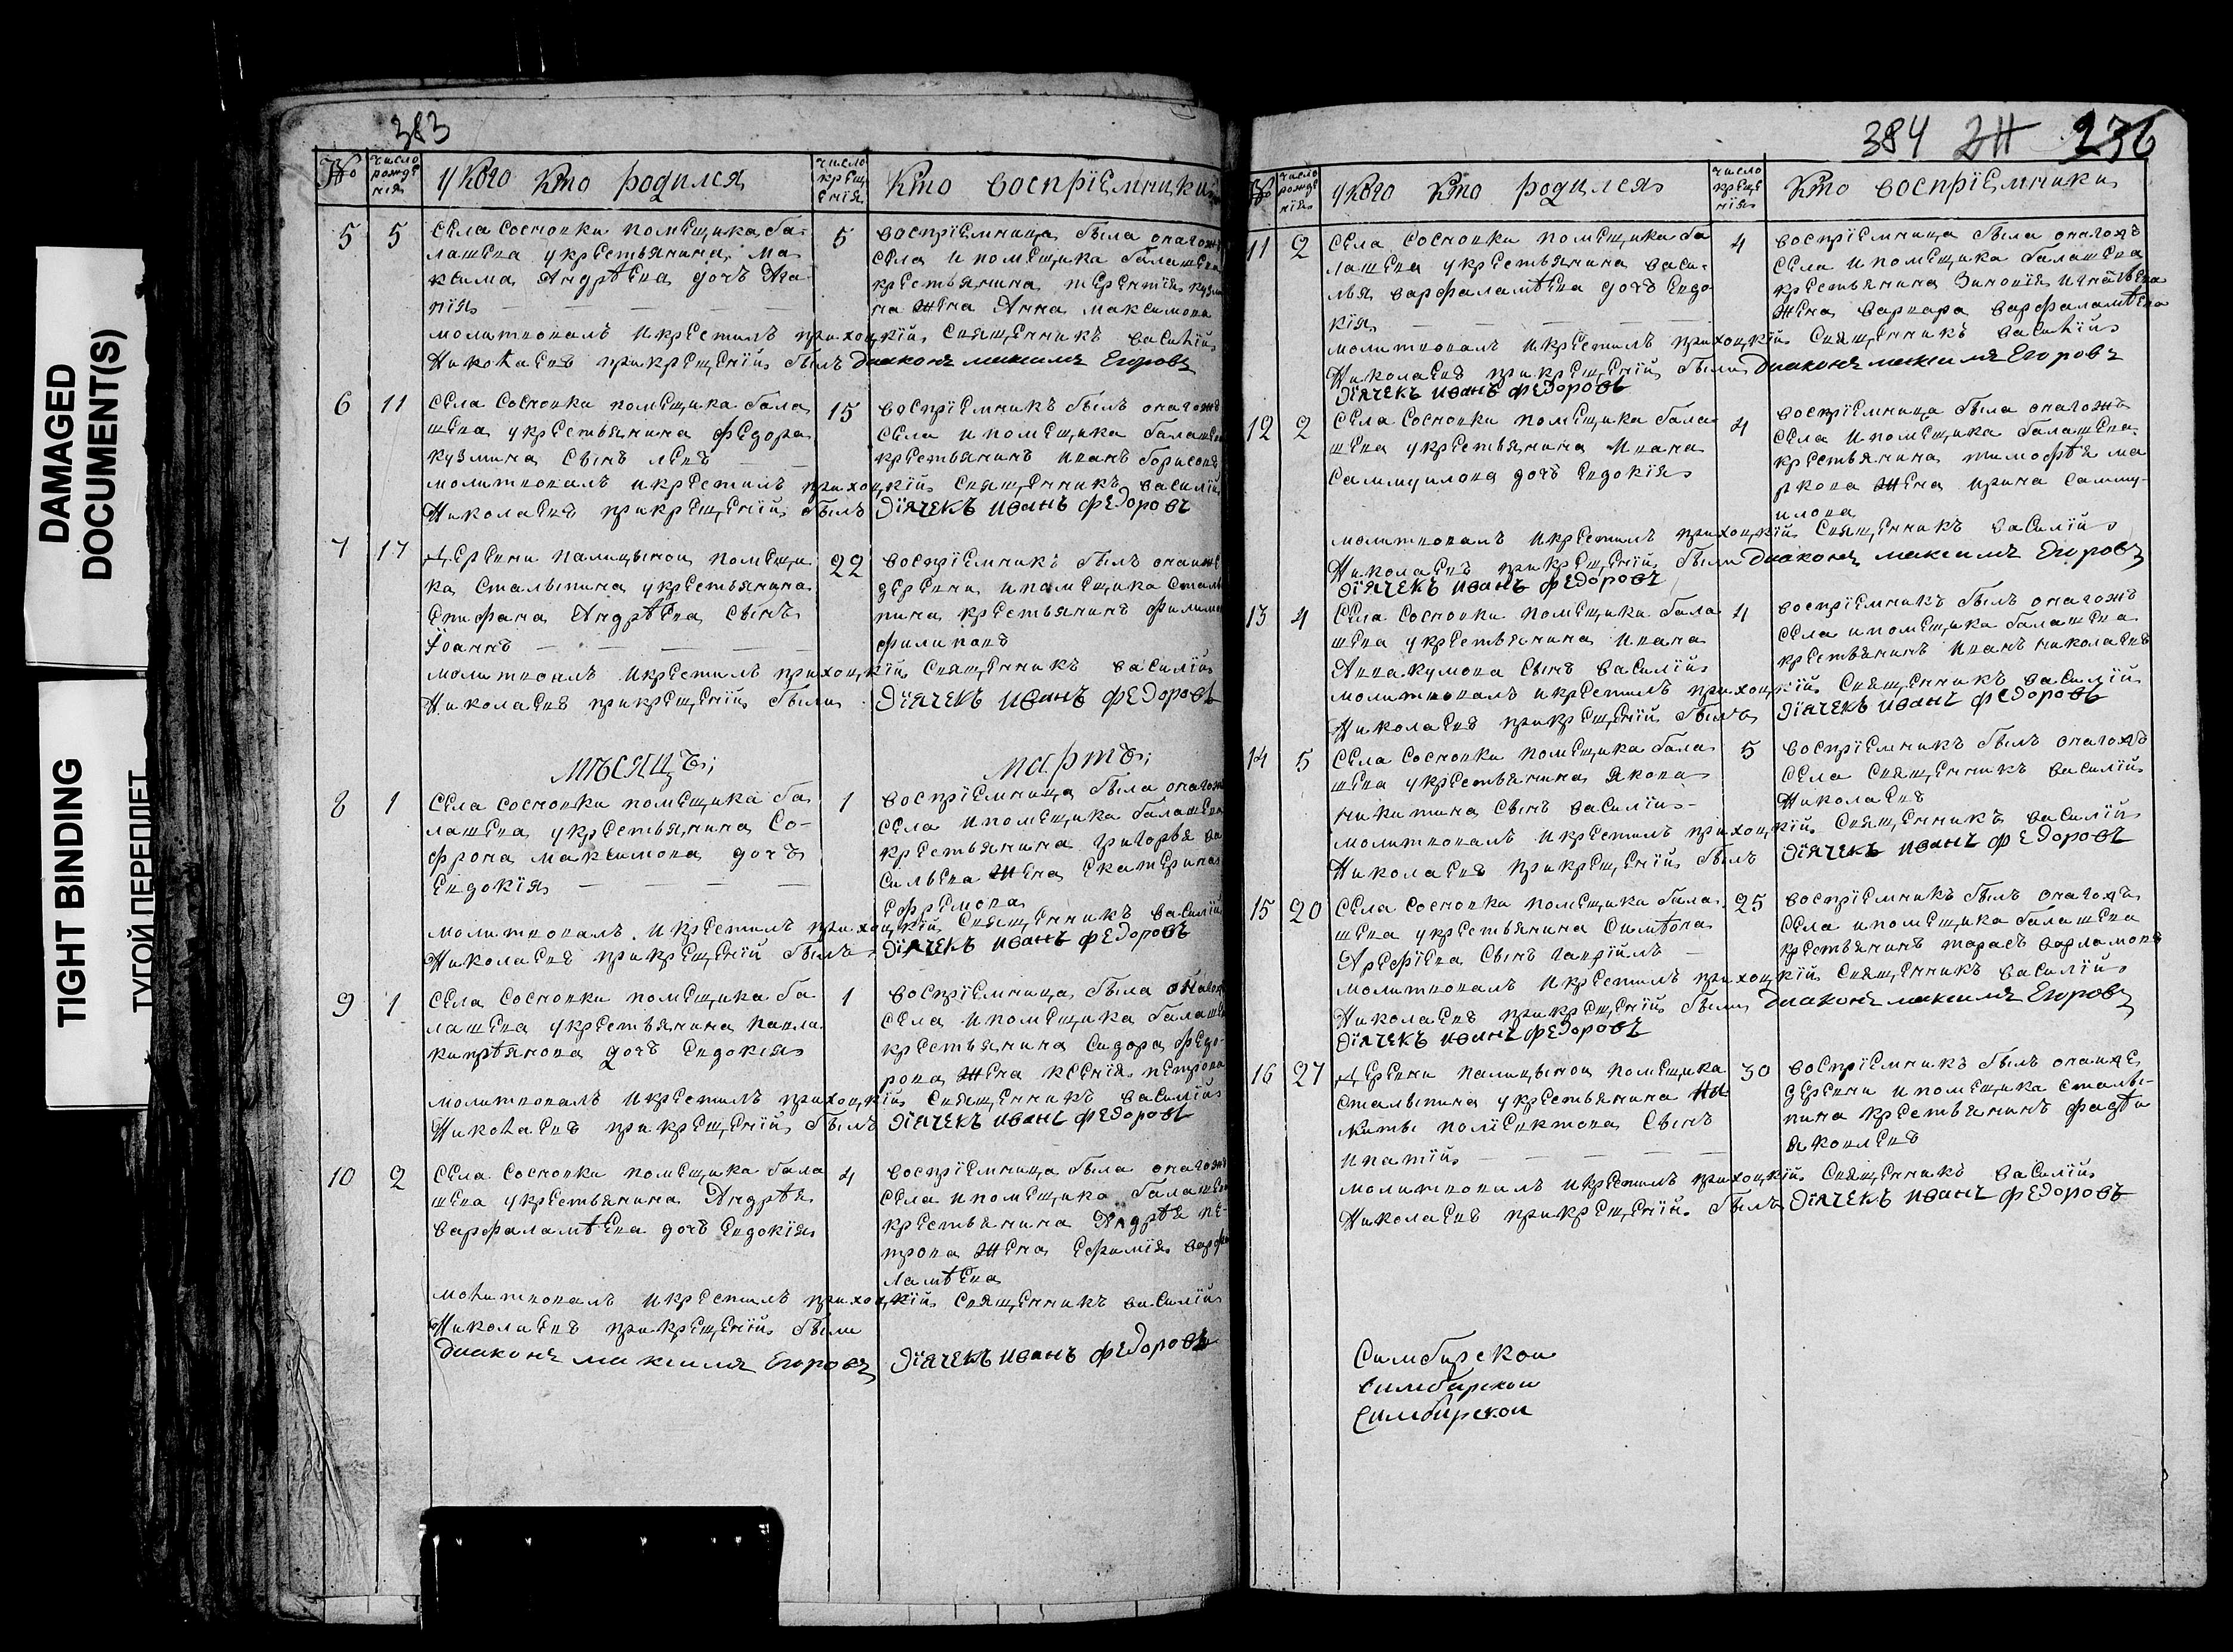 DAMAGED
DOCUMENT(S)
TIGHT BINDING
ТУГОЙ ПЕРЕПЛЕТ
383
№
число рожде нія
у кого кто родился
число крещ енія
кто воспріемники
5 5
села сосновки помещика ба-
лашева у крестьянина ма
ксима Андрѣева дочъ Ага
пія
5
воспріемница была онагожъ
села и помещика балашева
крестьянина терентія кузми
на жена Анна максимова
молитвовалъ и крестилъ приходцкій священникъ василій
Николаевъ при крещеній былъ диаконъ максимъ Егоровъ
6 11
села сосновки помещика бала
шева у крестьянина федора
кузмина сынъ левъ
15
воспріемникъ былъ онагожъ
села и помещика балашева
крестьянинъ иванъ борисовъ
молитвовалъ и крестилъ приходцкій священникъ василій
Николаевъ при крещеній былъ діячекъ иванъ федоровъ
7 17
деревни палицыной помещи
ка сталыпина у крестьянина
епифана Андрѣева сынъ
Іоаннъ
22
воспріемникъ былъ онаиже
деревни и помещика сталы
пина крестьянинъ филимонъ
филиповъ
молитвовалъ и крестилъ приходцкій священникъ василій
Николаевъ при крещеній были діячекъ иванъ федоровъ
мѣсяцъ; мартъ;
8 1
села сосновки помещика ба
лашева у крестьянина со-
фрона максимова дочъ
евдокія
1
воспріемница была онагожъ
села и помещика балашева
крестьянина григорья ва
сильева жена екатерина
ефремова
молитвовалъ и крестилъ приходцкій священникъ василій
Николаевъ при крещеній былъ діячекъ иванъ федоровъ
9 1
села сосновки помещика ба
лашева у крестьянина павла
кипрѣянова дочъ евдокія
1
воспріемница была онагожъ
села и помещика балашева
крестьянина сидора федо-
рова жена ксенія петрова
молитвовалъ и крестилъ приходцкій священникъ василій
Николаевъ при крещеній былъ діячекъ иванъ федоровъ
10 2
села сосновки помещика бала
шева у крестьянина Андрѣя
варфаламѣева дочъ евдокія
4
воспріемница была онагожъ
села и помещика балашева
крестьянина Андрѣя пе-
трова жена ефимія варфа
ламѣева
молитвовалъ и крестилъ приходцкій священникъ василій
Николаевъ при крещеній были
диаконъ максимъ Егоровъ діячекъ иванъ федоровъ
384 236
№
число рожде нія
у кого кто родился
число креще нія
кто воспріемники
11 2
села сосновки помещика ба
лашева у крестьянина васи-
лья варфаламѣева дочъ евдо
кія
4
воспріемница была онагожъ
села и помещика балашева
крестьянина Зиновія игнатьева
жена варвара варфаламѣева
молитвовалъ и крестилъ приходцкій священникъ василій
Николаевъ при крещеній были диаконъ максимъ Егоровъ
діячекъ иванъ федоровъ
12 2
села сосновки помещика бала
шева у крестьянина ивана
саммуилова дочъ евдокія
4
воспріемница была онагожъ
села и помещика балашева
крестьянина тимофѣя ма
ркова жена ирина самму-
илова
молитвовалъ и крестилъ приходцкій священникъ василій
Николаевъ при крещеній были диаконъ максимъ Егоровъ
діячекъ иванъ федоровъ
13 4
села сосновки помещика бала
шева у крестьянина ивана
Авакумова сынъ василій
4
воспріемникъ былъ онагожъ
села и помещика балашева
крестьянинъ иванъ николаевъ
молитвовалъ и крестилъ приходцкій священникъ василій
Николаевъ при крещеній былъ діячекъ иванъ федоровъ
14 5
села сосновки помещика бала
шева у крестьянина якова
никитина сынъ василій-
5
воспріемникъ былъ онагожъ
села священникъ василій
Николаевъ
молитвовалъ и крестилъ приходцкій священникъ василій
Николаевъ при крещеній былъ діячекъ иванъ федоровъ
15 20
села сосновки помещика бала
шева у крестьянина симѣона
Арефіева сынъ гавріилъ
25
воспріемникъ былъ онагожъ
села и помещика балашева
крестьянинъ тарасъ варламовъ
молитвовалъ и крестилъ приходцкій священникъ василій
Николаевъ при крещеній были диаконъ максимъ Егоровъ
діячекъ иванъ федоровъ
16 27
деревни палицыной помещика
сталыпина у крестьянина ни
киты полиевктова сынъ
ипатій
30
воспріемникъ былъ онаиже
деревни и помещика сталы-
пина крестьянинъ фадѣи
яковлевъ
молитвовалъ и крестилъ приходцкій священникъ василій
Николаевъ при крещеній былъ діячекъ иванъ федоровъ
Симбирскои
симбирскои
Симбирскои